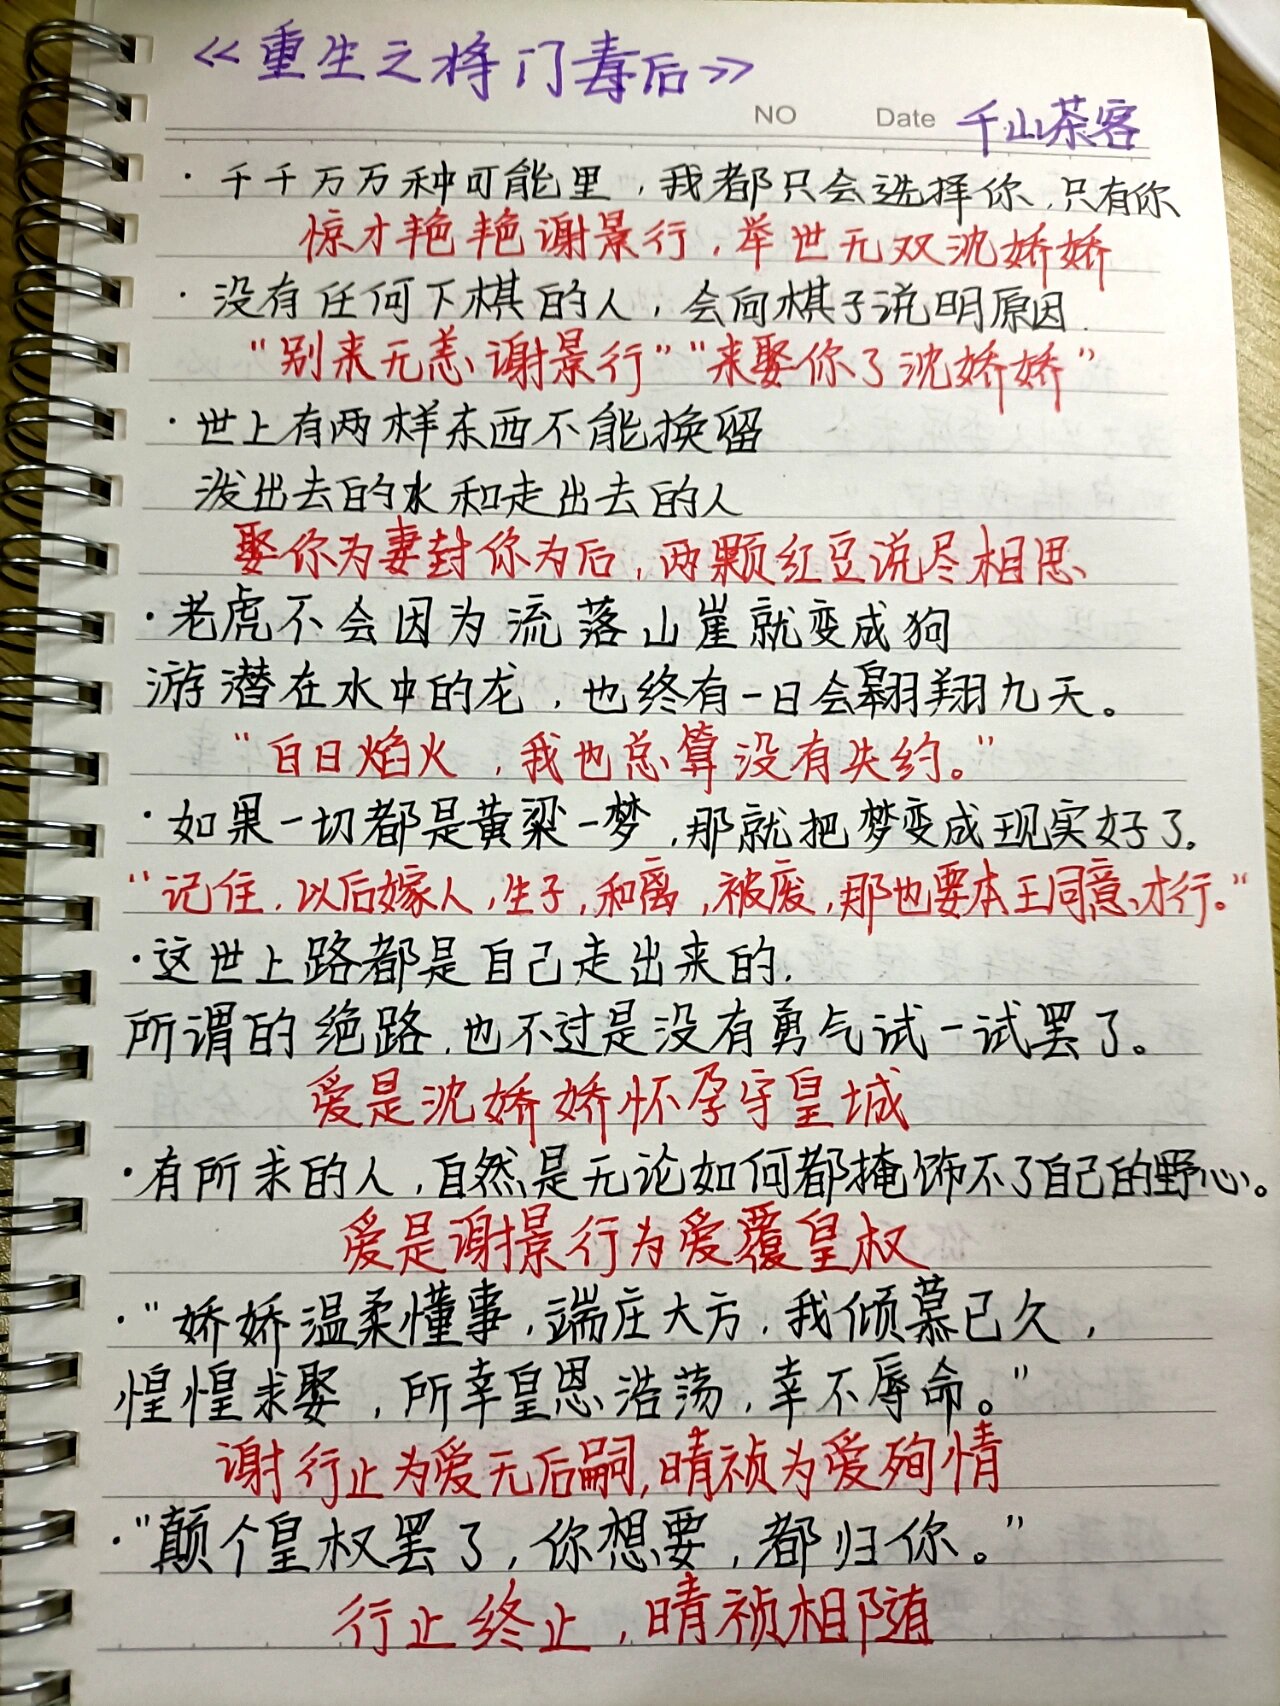 《重生之将门毒后》
NO Date 千山茶客
·千千万万种可能里，我都只会选择你，只有你
惊才艳艳谢景行，举世无双沈娇娇
·没有任何下棋的人，会向棋子说明原因.
“别来无恙谢景行”“来娶你了沈娇娇”
·世上有两样东西不能换留
泼出去的水和走出去的人
娶你为妻封你为后，两颗红豆说尽相思
·老虎不会因为流落山崖就变成狗
游潜在水中的龙，也终有一日会翱翔九天。
“白日焰火，我也总算没有失约。”
·如果一切都是黄粱一梦，那就把梦变成现实好了。
“记住，以后嫁人，生子，和离，被废，那也要本王同意才行。”
·这世上路都是自己走出来的.
所谓的绝路，也不过是没有勇气试一试罢了。
爱是沈娇娇怀孕守皇城
·有所求的人，自然是无论如何都掩饰不了自己的野心。
爱是谢景行为爱覆皇权
·“娇娇温柔懂事，端庄大方，我倾慕已久，
惶惶求娶，所幸皇恩浩荡，幸不辱命。”
谢行止为爱无后嗣，晴祯为爱殉情
·“颠个皇权罢了，你想要，都归你。”
行止终止，晴祯相随